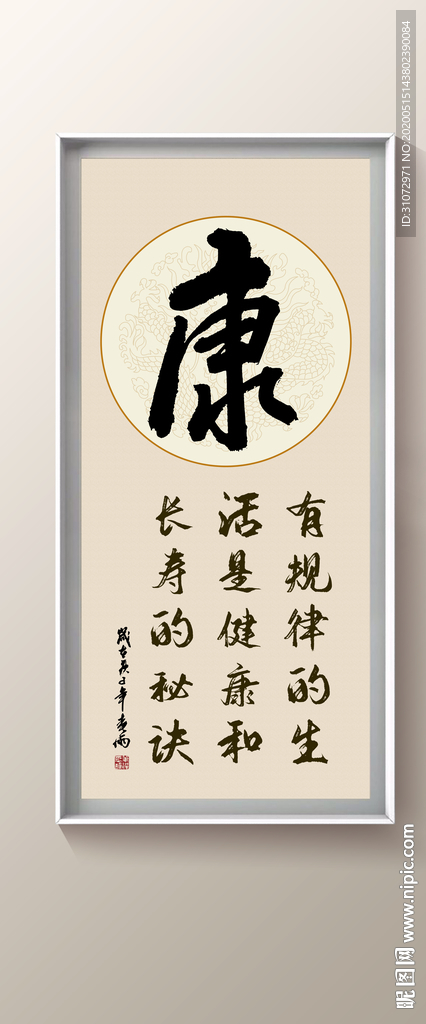 康
有规律的生
活是健康和
长寿的秘诀
岁在庚子年
ID:31072971 NO:20200515143802390084
昵图网 www.nipic.com